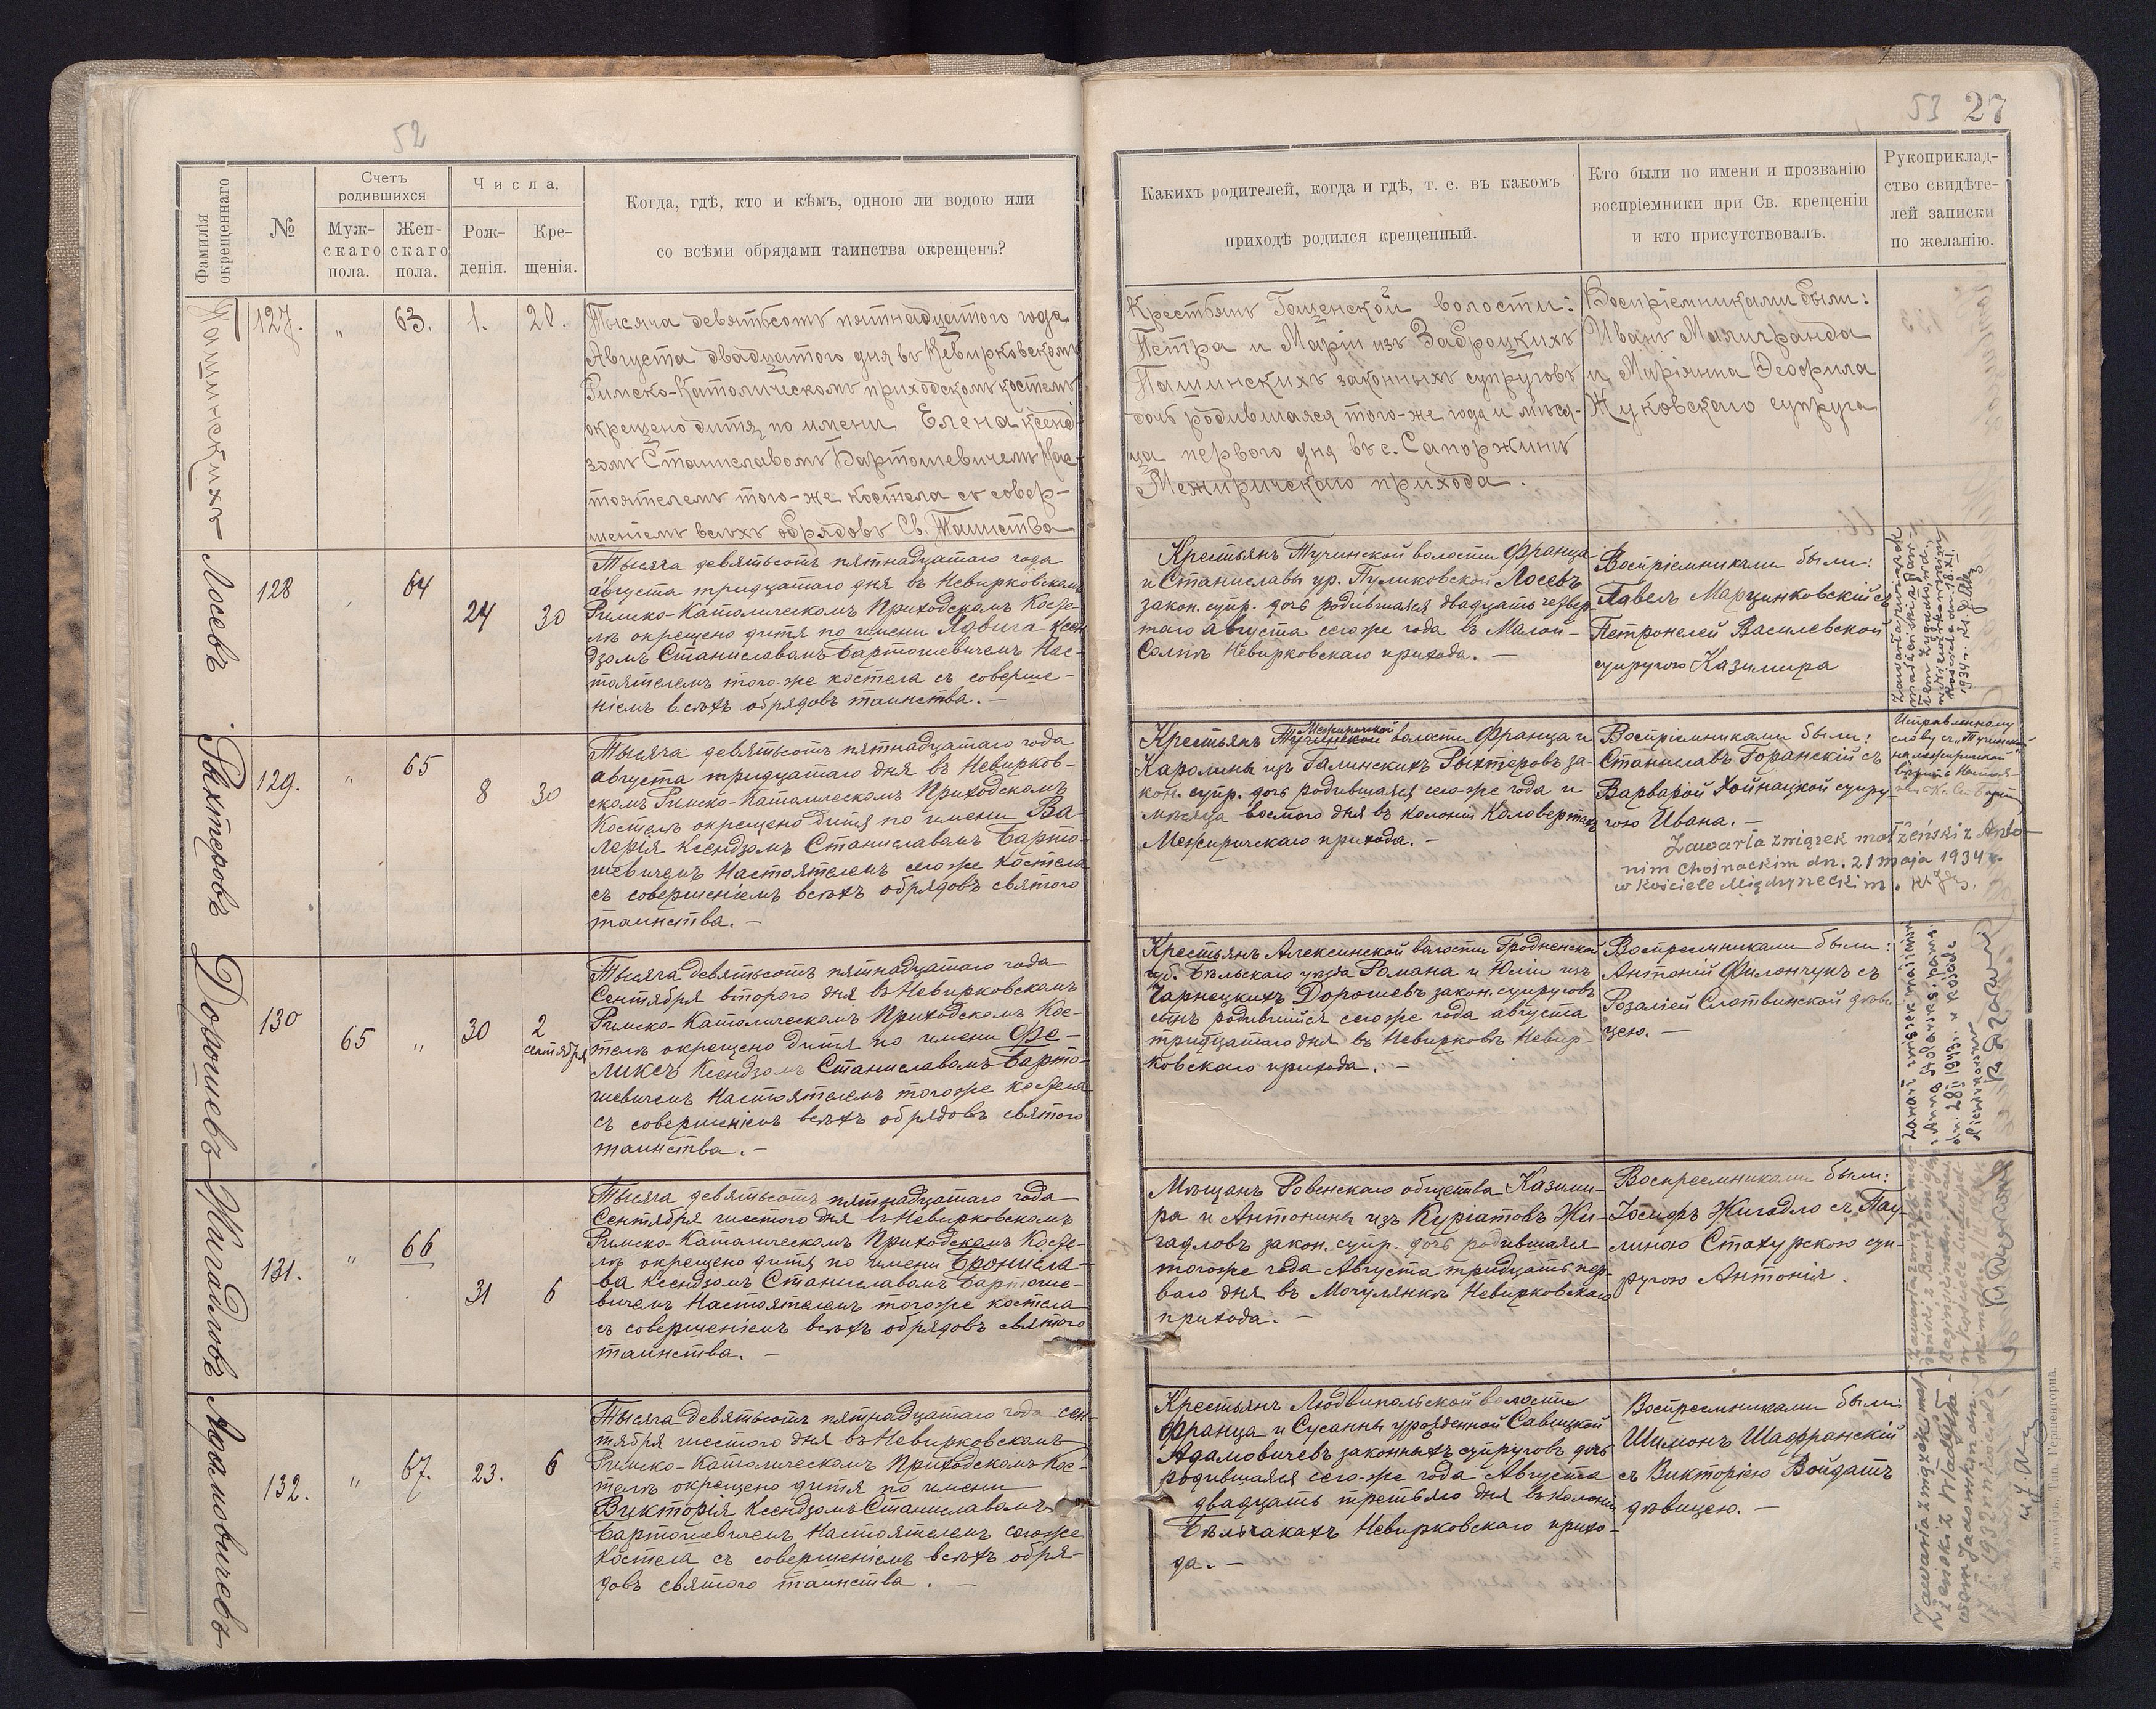 52
Фамилія окрещеннаго
№
Счетъ родившихся
Муж-скаго пола.
Жен-скаго пола.
Числа.
Рож-денія.
Кре-щенія.
Когда, гдѣ, кто и кѣмъ, одною ли водою или
со всѣми обрядами таинства окрещенъ?
Пашинскихъ
127.
"
63.
1.
20.
Тысяча девятьсотъ пятнадцатого года
Августа двадцатого дня въ Невирковскомъ
Римско-Католическомъ приходскомъ костелѣ
окрещено дитя по имени Елена ксенд-
зомъ Станиславомъ Бартошевичемъ Нас-
тоятелемъ того-же костела съ совер-
шеніемъ всѣхъ обрядовъ Св. Таинства
Лосевъ
128
"
64
24
30
Тысяча девятьсотъ пятнадцатаго года
августа тридцатаго дня въ Невирковскомъ
Римско-Католическомъ Приходскомъ Косте-
лѣ окрещено дитя по имени Ядвига ксен
дзомъ Станиславомъ Бартошевичемъ Нас-
тоятелемъ того-же костела съ соверше-
ніемъ всѣхъ обрядовъ таинства. —
Рыхтеровъ
129.
"
65
8
30
Тысяча девятьсотъ пятнадцатаго года
августа тридцатаго дня въ Невирков-
скомъ Римско-Католическомъ Приходскомъ
Костелѣ окрещено дитя по имени Ва-
лерія Ксендзомъ Станиславомъ Барто-
шевичемъ Настоятелемъ сего же Костела
съ совершеніемъ всѣхъ обрядовъ святого
таинства. —
Дорошевъ
130
65
"
30
2 сентября
Тысяча девятьсотъ пятнадцатаго года
Сентября второго дня въ Невирковскомъ
Римско-Католическомъ Приходскомъ Кос-
телѣ окрещено дитя по имени Фе-
ликсъ Ксендзомъ Станиславомъ Барто-
шевичемъ Настоятелемъ того же костела
съ совершеніемъ всѣхъ обрядовъ святого
таинства. —
Жигадловъ
131.
"
66
31
6
Тысяча девятьсотъ пятнадцатаго года
Сентября шестого дня въ Невирковскомъ
Римско-Католическомъ Приходскомъ Косте-
лѣ окрещено дитя по имени Бронисла-
ва Ксендзомъ Станиславомъ Бартоше-
вичемъ Настоятелемъ того же костела
съ совершеніемъ всѣхъ обрядовъ святого
таинства. —
Адамовичевъ
132.
"
67.
23.
6
Тысяча девятьсотъ пятнадцатаго года сен-
тября шестого дня въ Невирковскомъ
Римско-Католическомъ Приходскомъ Кос-
телѣ окрещено дитя по имени
Викторія Ксендзомъ Станиславомъ
Бартошевичемъ Настоятелемъ сего же
Костела съ совершеніемъ всѣхъ обря-
довъ святого таинства. —
53 27
Какихъ родителей, когда и гдѣ, т. е. въ какомъ
приходѣ родился крещенный.
Кто были по имени и прозванію
воспріемники при Св. крещеніи
и кто присутствовалъ.
Рукоприклад-
ство свидѣте-
лей записки
по желанію.
Крестьянъ Гощенской волости:
Петра и Маріи изъ Заброцкихъ
Пашинскихъ законныхъ супруговъ
дочь родившаяся того-же года и мѣся-
ца первого дня въ с. Сапоржинѣ
Межиричскаго прихода.
Воспріемниками были:
Иванъ
и Маріянна Ѳеофила
Жуковскаго супруга
Крестьянъ Тучинской волости Франца
и Станиславы ур. Пуликовской Лосевъ
закон. супр. дочь родившаяся двадцать четвер-
таго августа сего же года въ Малой-
Невирковскаго прихода. —
Воспріемниками были:
Павелъ Марцинковскій съ
Петронелей Василевской
супругою Казимира
Zawarła związek
małżeński
1934 r.
Межиричской
Крестьянъ Тучинской волости Франца и
Каролины изъ Галинскихъ Рыхтеровъ за-
кон. супр. дочь родившаяся сего-же года и
мѣсяца восмого дня въ колоніи Коловертахъ
Межиричскаго прихода. —
Воспріемниками были:
Станиславъ Горанскій съ
Варварой Хойнацкой супру-
гою Ивана. —
Исправленному
слову съ „Тучинской"
на межирицкой
вѣрить
Zawarła związek małżeński z Anto-
nim Chojnackim dn. 21 maja 1934 r.
w kościele Międzyrzeckim.
Крестьянъ Алексинской волости Гродненской
губ. Бѣльскаго уѣзда Романа и Юліи изъ
Чарнецкихъ Дорошевъ закон. супруговъ
сынъ родившійся сего же года августа
тридцатаго дня въ Невирковѣ Невир-
ковскаго прихода. —
Воспреемниками были:
Антоній Филончукъ съ
Розаліей Слотвинской дѣви
цею. —
Мѣщанъ Ровенскаго общества Казими-
ра и Антонины изъ Куріатовъ Жи-
гадловъ закон. супр. дочь родившаяся
того же года Августа тридцать пер-
ваго дня въ Мочулянкѣ Невирковскаго
прихода. —
Воспреемниками были:
Іосифъ Жигадло съ Пау-
линою Стахурскою суп-
ругою Антонія.
Крестьянъ Людвипольской волости
Франца и Сусанны урожденной Савицкой
Адамовичевъ законныхъ супруговъ дочь
родившаяся сего-же года Августа
двадцать третьяго дня въ колоніи
Бѣльчакахъ Невирковскаго прихо-
да. —
Воспреемниками были
Шимонъ Шафранскій
съ Викторіею Войдатъ
дѣвицею. —
Zawarła związek mał-
żeński z Władysła-
wem
Житоміръ. Тип.